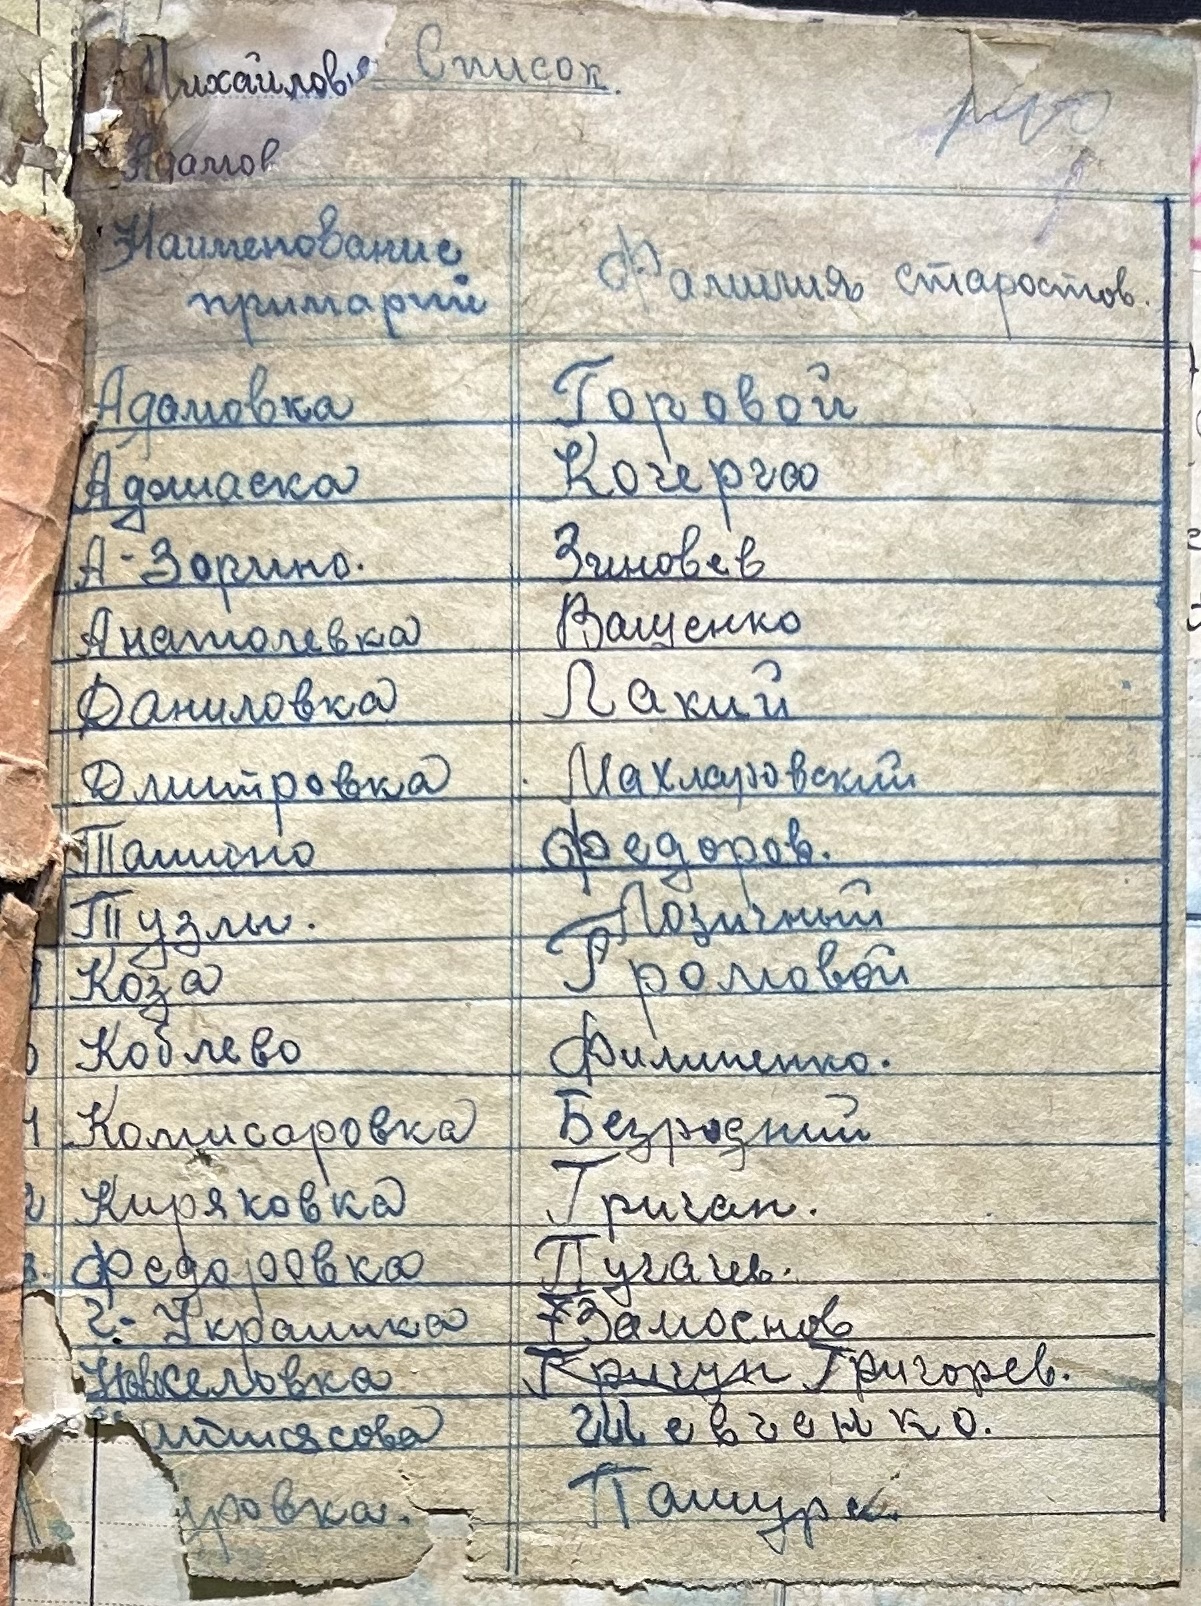 Михайловка Список.
Адамов
Наименование Фамилия старостов.
примарий
Адамовка Горовой
Аджиаска Кочерга
А-Зорино. Зиновев
Анатолевка Ващенко
Даниловка Лакий
Дмитровка Махларовский
Ташино Федоров.
Тузлы. Лозичный
Коза Громовой
Коблево Филипенко.
Комисаровка Безродний
Киряковка Григан.
Федоровка Пугачев.
Г.-Украинка Замоснов
Новоселовка Григорев.
Шевченко.
уровка. Пашура